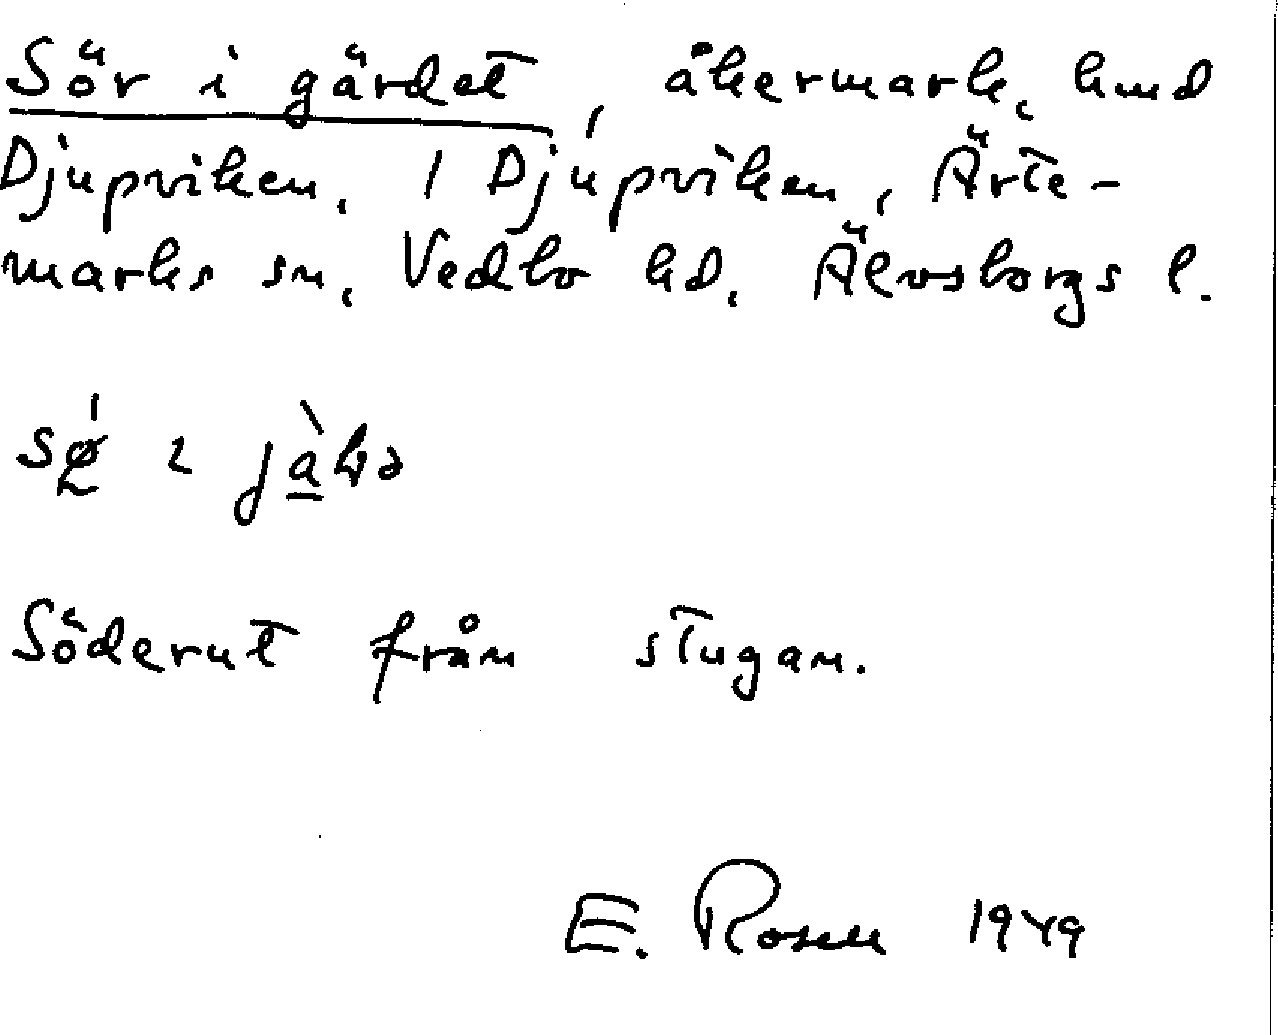 Sör i gärdet, åkermark, hmd
Djupviken, 1 Djupviken, Ärte-
marks sn, Vedbo hd, Älvsborgs l.
Söderut från stugan.
E. Rosell 1949